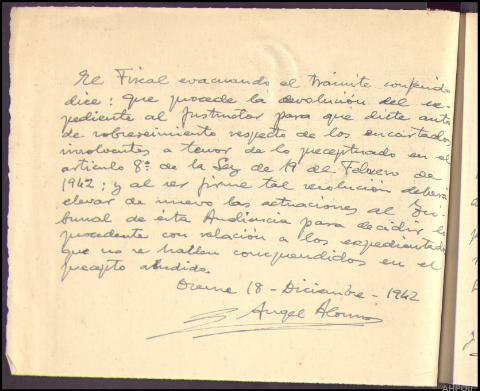 El Fiscal evacuando el trámite conferido
dice: que procede la devolución del ex-
pediente al Instructor para que dicte auto
de sobreseimiento respecto de los encartados
insolventes a tenor de lo preceptuado en el
artículo 8º de la Ley de 19 de Febrero de
1942; y al ser firme tal resolución deberá
elevar de nuevo las actuaciones al Tri-
bunal de esta Audiencia para decidir lo
procedente con relación a los expedientados
que no se hallen comprendidos en el
precepto aludido.
Orense 18 - Diciembre - 1942
Angel Alonso